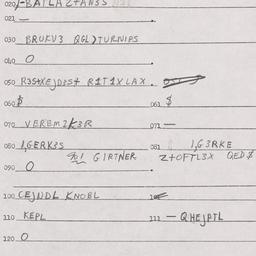 020 /-BATLAZ+AN3S
021 —
030 BRUKV3 QGL)TURNIPS
040 O
050 R3S+XEJD3S+ R1T1XLAX
060 $ 061 $
070 VEREMZK3R 071 —
080 1,GERK3S 081 1,G3RKE
%1 GIRTNER Z+OFTL3X QED$
090 O
100 CEJNDL KNOBL
110 KEPL 111 — QHEJPTL
120 O